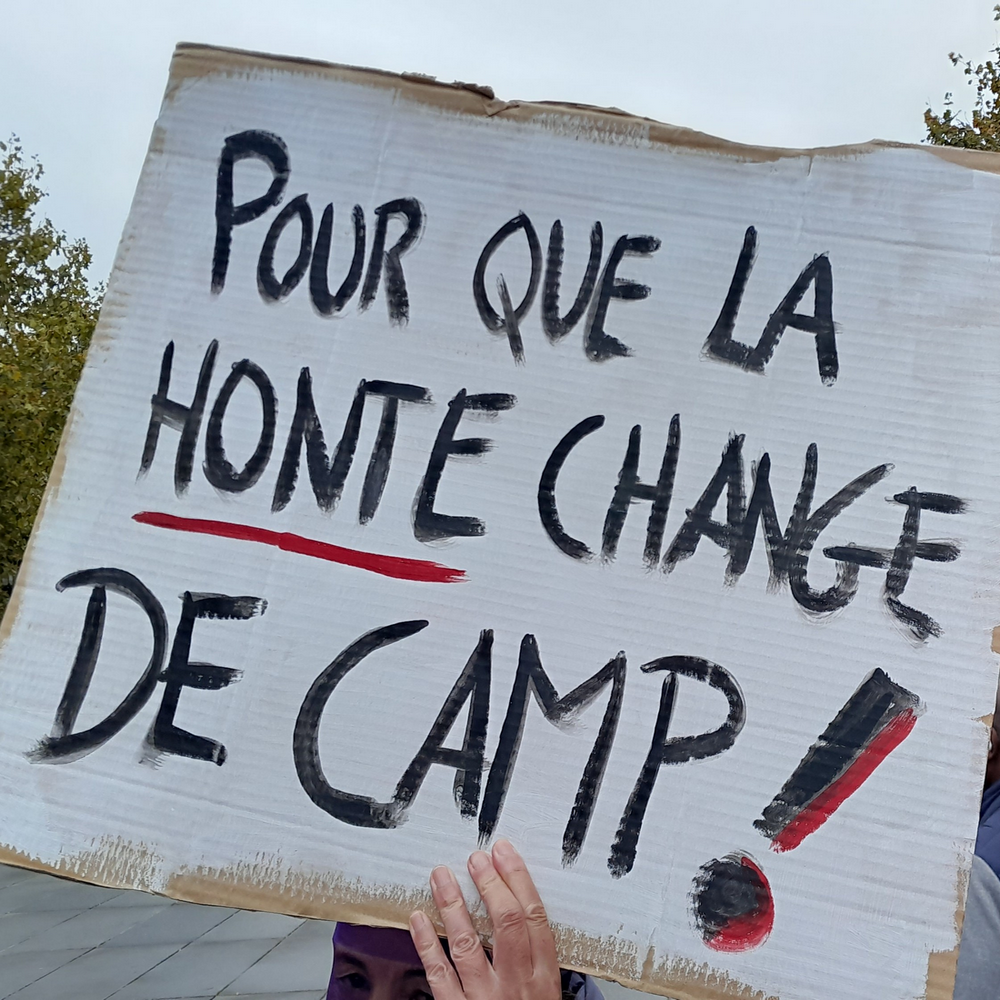 POUR QUE LA
HONTE CHANGE
DE CAMP!